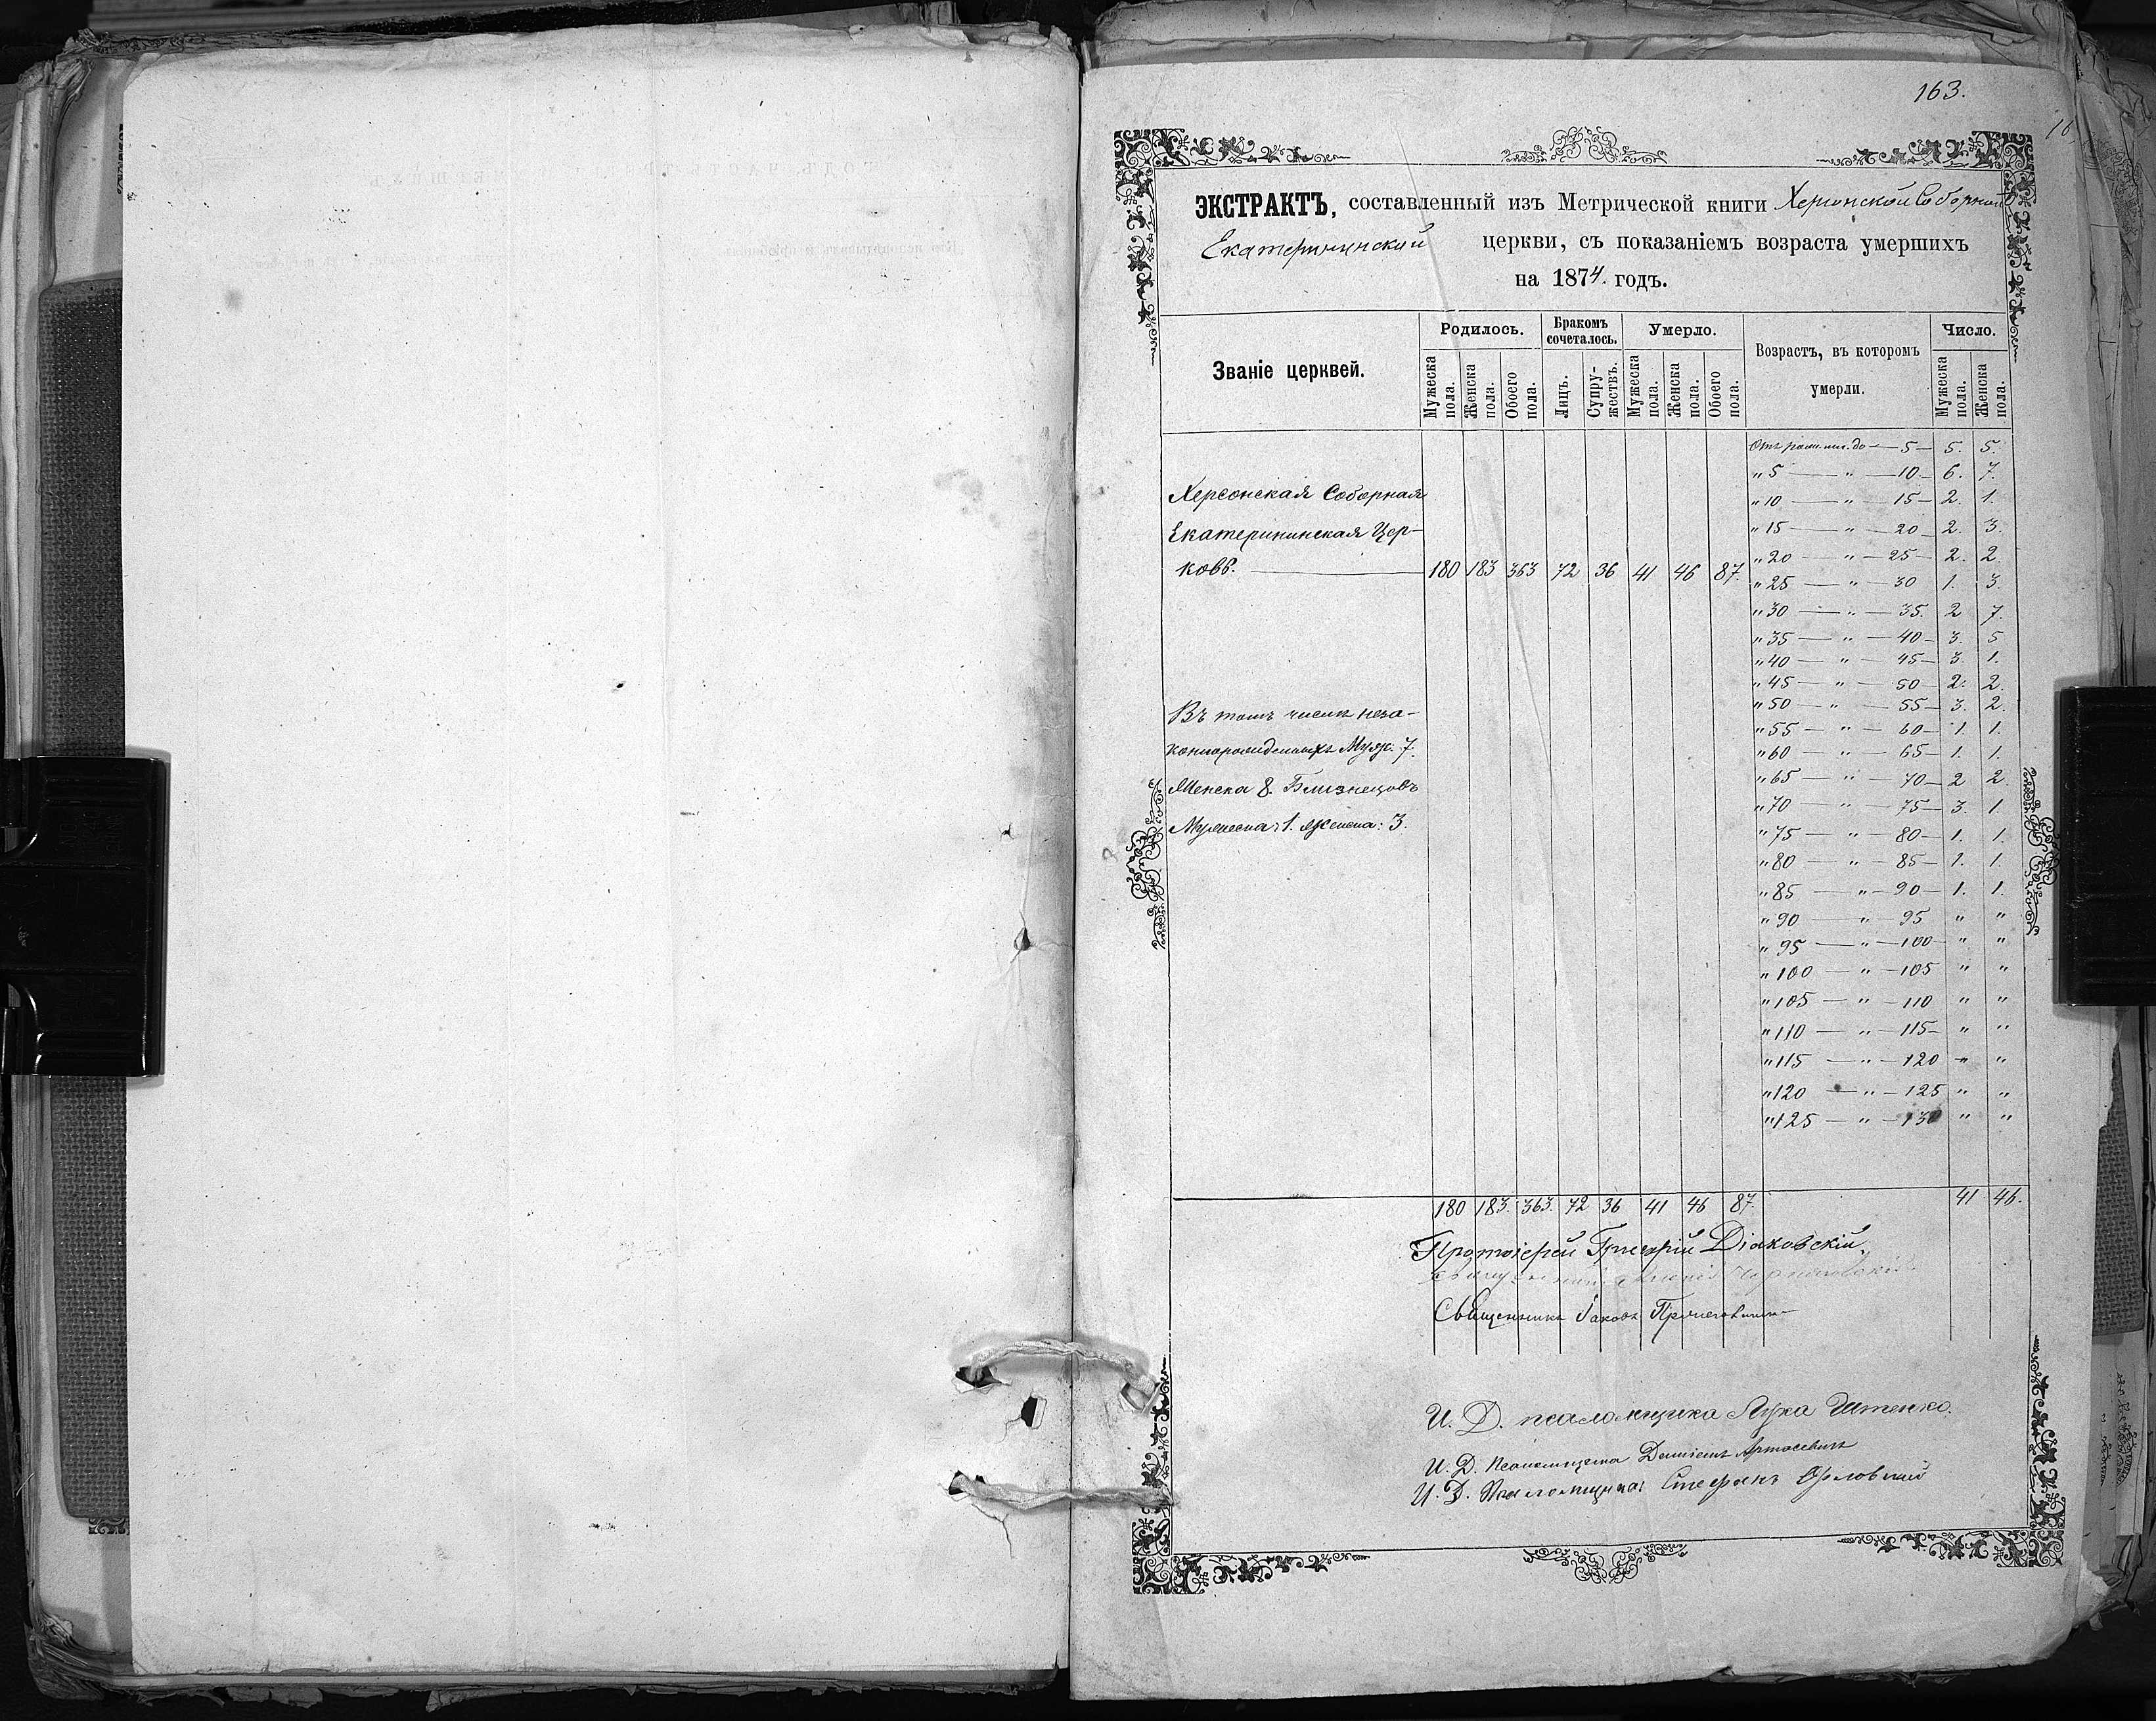 163.
ЭКСТРАКТЪ, составленный изъ Метрической книги Херсонской Соборной
Екатерининской церкви, съ показаніемъ возраста умершихъ
на 1874. годъ.
Званіе церквей. Родилось. Бракомъ сочеталось. Умерло. Возрастъ, въ которомъ умерли. Число.
Мужеска пола. Женска пола. Обоего пола. Лицъ. Супружествъ. Мужеска пола. Женска пола. Обоего пола. Мужеска пола. Женска пола.
Херсонская Соборная
Екатерининская Цер-
ковь. 180 183 363 72 36 41 46 87.
Въ томъ числѣ неза-
коннорожденныхъ Муж. 7.
Женска 8. Близнецовъ
Мужеска 1. Женска: 3.
Отъ рожд. до — 5 — 5. 5.
„ 5 — „ — 10 — 6. 7.
„ 10 — „ — 15 — 2. 1.
„ 15 — „ — 20 — 2. 3.
„ 20 — „ — 25 — 2. 2
„ 25 — „ — 30 1. 3.
„ 30 — „ — 35. 2 7.
„ 35 — „ — 40 — 3. 5
„ 40 — „ — 45 — 3. 1.
„ 45 — „ — 50 — 2. 2.
„ 50 — „ — 55 — 3. 2.
„ 55 — „ — 60 — 1. 1.
„ 60 — „ — 65 — 1. 1.
„ 65 — „ — 70 — 2 2.
„ 70 — „ — 75 — 3. 1.
„ 75 — „ — 80 — 1. 1.
„ 80 — „ — 85 — 1. 1.
„ 85 — „ — 90 — 1. 1.
„ 90 — „ — 95 „ „
„ 95 — „ — 100 — „ „
„ 100 — „ — 105 „ „
„ 105 — „ — 110 „ „
„ 110 — „ — 115 — „ „
„ 115 — „ — 120 — „ „
„ 120 — „ — 125 „ „
„ 125 — „ — 130 „ „
180 183. 363. 72 36 41 46 87. 41 46.
Протоіерей Григорій Діаковскій.
Священникъ
Священникъ Іаковъ
И. Д. псаломщика Лука Ященко.
И. Д. Псаломщика
И. Д. Псаломщика Стефанъ Орловскій